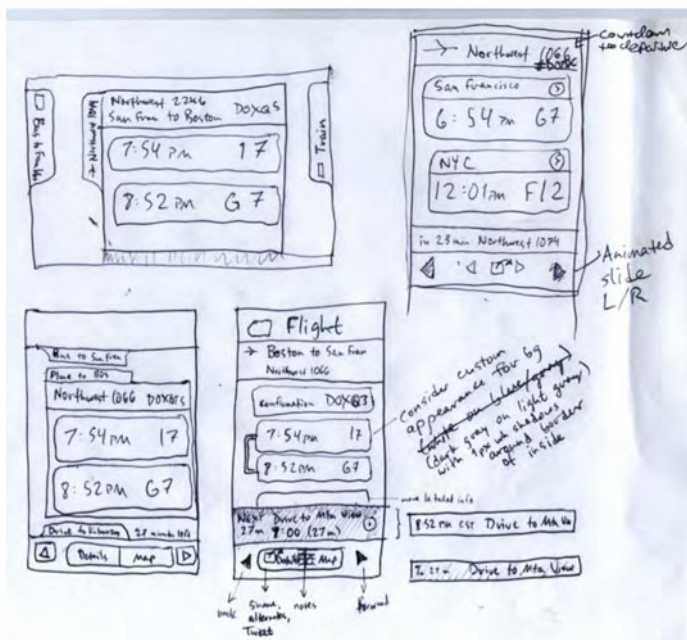 Bus to
Northwest 2246
San Fran to Boston
DOXQRS
7:54 PM 17
8:52 PM G 7
Train
Northwest 1066
countdown
to departure
San Francisco
6:54 PM G7
NYC
12:01 PM F12
in 23 min Northwest 1074
Animated
slide
L/R
Bus to San Fran
Plane to BOS
Northwest 1066
7:54 PM 17
8:52 PM G7
Details Map
Flight
Boston to San Fran
Northwest 1066
Confirmation
7:54 PM 17
8:52 PM G7
more detailed info
Next Drive to Mtn View
27m 8:00 (27m)
Map
back
alternates,
Tweet
notes
forward
Consider custom
appearance for bg
(dark gray on light gray)
with 1px wh shadows
around border
of inside
8:52 PM CST Drive to Mtn Vw
Drive to Mtn View